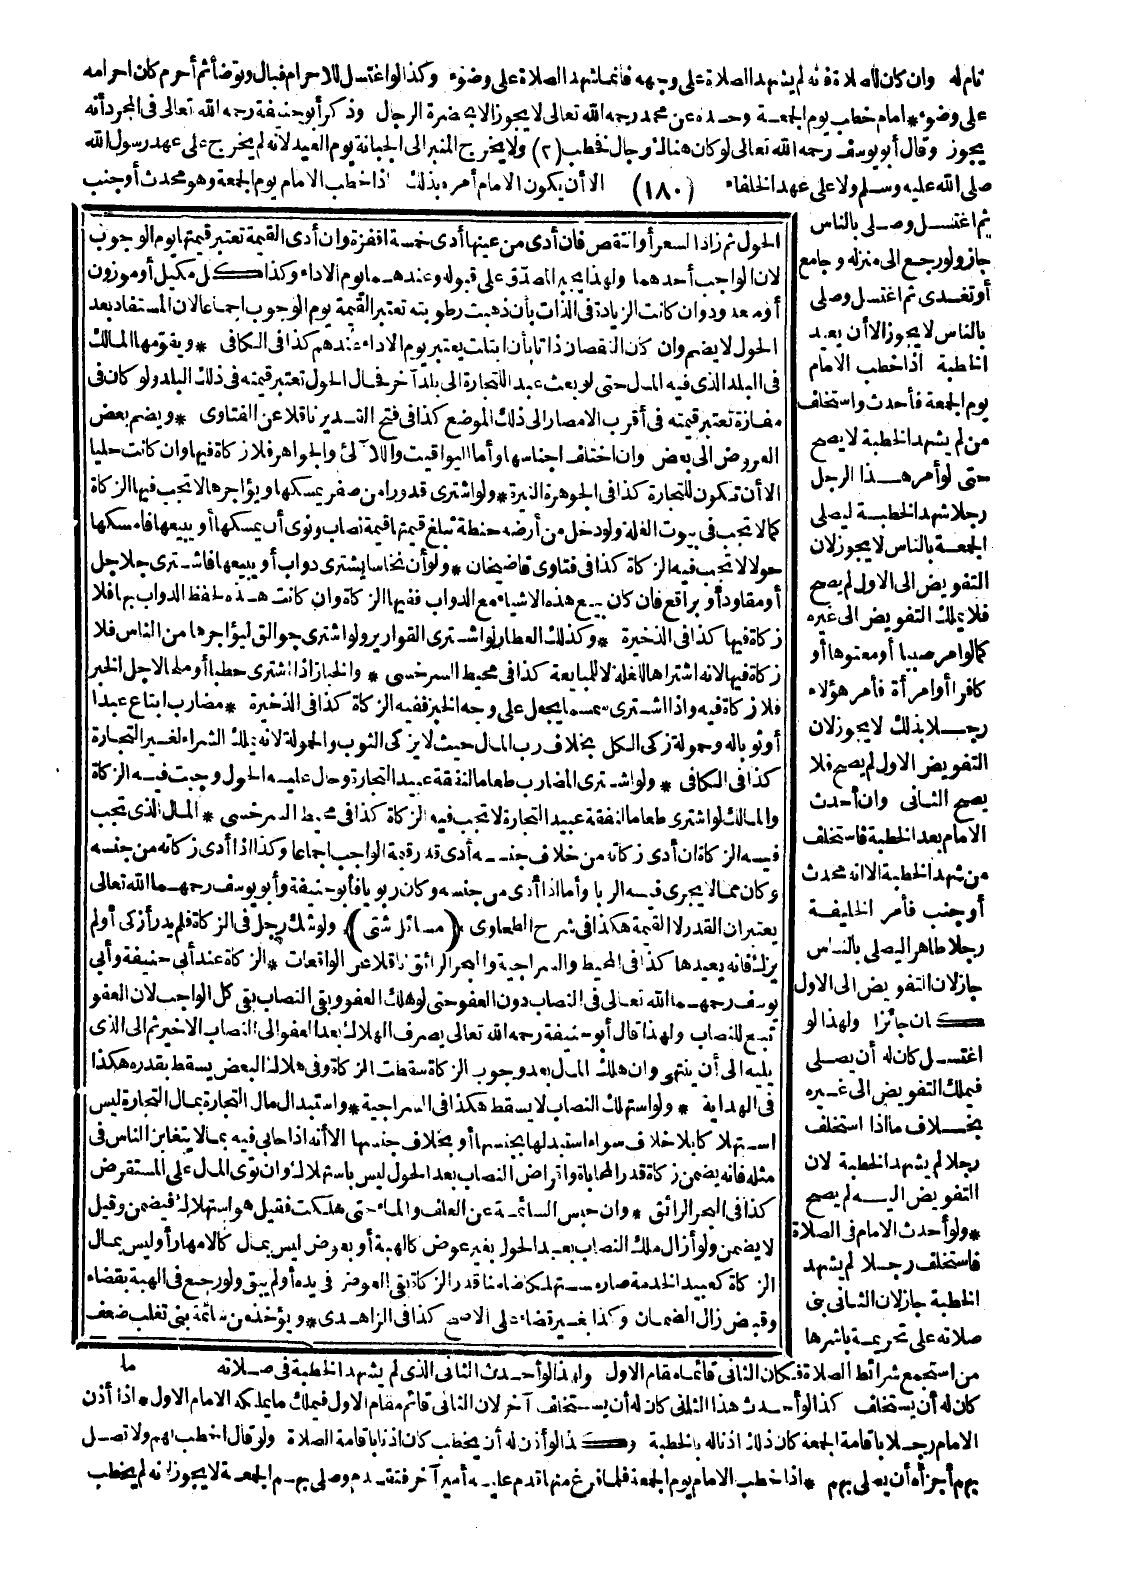 تام له وان كان للصلاة فانه لم يشهد الصلاة على وجهه فانما شهد الصلاة على وضوء وكذا لو اغتسل للاحرام فبال وتوضأ ثم أحرم كان احرامه
على وضوء * امام خطب يوم الجمعة وحده عن محمد رحمه الله تعالى لا يجوز الا بحضرة الرجال وذكر أبو حنيفة رحمه الله تعالى فى المجرد أنه
يجوز وقال أبو يوسف رحمه الله تعالى لو كان هنالك رجال فخطب (٢) ولا يخرج المنبر الى الجبانة يوم العيد لانه لم يخرج على عهد رسول الله
صلى الله عليه وسلم ولا على عهد الخلفاء (١٨٠) الا أن يكون الامام أمره بذلك اذا خطب الامام يوم الجمعة وهو محدث أو جنب
ثم اغتسل وصلى بالناس
جاز ولو رجع الى منزله وجامع
أو تغدى ثم اغتسل وصلى
بالناس لا يجوز الا أن يعيد
الخطبة اذا خطب الامام
يوم الجمعة فأحدث واستخلف
من لم يشهد الخطبة لا يصح
حتى لو أمر هذا الرجل
رجلا شهد الخطبة ليصلى
الجمعة بالناس لا يجوز لان
التفويض الى الاول لم يصح
فلا يملك التفويض الى غيره
كما لو امر صبيا أو معتوها أو
كافرا أو امرأة فأمر هؤلاء
رجلا بذلك لا يجوز لان
التفويض الاول لم يصح فلا
يصح الثانى وان أحدث
الامام بعد الخطبة فاستخلف
من شهد الخطبة الا انه محدث
أو جنب فأمر الخليفة
رجلا طاهرا ليصلى بالناس
جاز لان التفويض الى الاول
كان جائزا ولهذا لو
اغتسل كان له أن يصلى
فيملك التفويض الى غيره
بخلاف ما اذا استخلف
رجلا لم يشهد الخطبة لان
التفويض اليه لم يصح
* ولو أحدث الامام فى الصلاة
فاستخلف رجلا لم يشهد
الخطبة جاز لان الثانى بنى
صلاته على تحريمة باشرها
الحول ثم زاد السعر أو انتقص فان أدى من عينها أدى خمسة اقفزة وان أدى القيمة تعتبر قيمتها يوم الوجوب
لان الواجب أحدهما ولهذا يجبر المصدق على قبوله وعندهما يوم الاداء وكذا كل مكيل أو موزون
أو معدود وان كانت الزيادة فى الذات بأن ذهبت رطوبته تعتبر القيمة يوم الوجوب اجماعا لان المستفاد بعد
الحول لا يضم وان كان النقصان ذاتا بأن ابتلت يعتبر يوم الاداء عندهم كذا فى الكافى * ويقومها المالك
فى البلد الذى فيه المال حتى لو بعث عبد التجارة الى بلد آخر فحال الحول تعتبر قيمته فى ذلك البلد ولو كان فى
مفازة تعتبر قيمته فى أقرب الامصار الى ذلك الموضع كذا فى فتح القدير ناقلا عن الفتاوى * ويضم بعض
العروض الى بعض وان اختلف اجناسها وأما اليواقيت واللآلئ والجواهر فلا زكاة فيها وان كانت حليا
الا أن تكون للتجارة كذا فى الجوهرة النيرة * ولو اشترى قدورا من صفر يمسكها ويؤاجرها لا تجب فيها الزكاة
كما لا تجب فى بيوت الغلة ولو دخل من أرضه حنطة تبلغ قيمتها قيمة نصاب ونوى أن يمسكها أو يبيعها فأمسكها
حولا لا تجب فيه الزكاة كذا فى فتاوى قاضيخان * ولو أن نخاسا يشترى دواب أو يبيعها فاشترى جلاجل
أو مقاود أو براقع فان كان بيع هذه الاشياء مع الدواب ففيها الزكاة وان كانت هذه لحفظ الدواب بها فلا
زكاة فيها كذا فى الذخيرة * وكذلك العطار لو اشترى القوارير ولو اشترى جوالق ليؤاجرها من الناس فلا
زكاة فيها لانه اشتراها للغلة لا للمبايعة كذا فى محيط السرخسى * والخباز اذا اشترى حطبا أو ملحا لاجل الخبز
فلا زكاة فيه واذا اشترى سمسما يجعل على وجه الخبز ففيه الزكاة كذا فى الذخيرة * مضارب ابتاع عبدا
أو ثوبا له وحمولة زكى الكل بخلاف رب المال حيث لا يزكى الثوب والحمولة لانه يملك الشراء لغير التجارة
كذا فى الكافى * ولو اشترى المضارب طعاما لنفقة عبيد التجارة وحال عليه الحول وجبت فيه الزكاة
والمالك لو اشترى طعاما لنفقة عبيد التجارة لا تجب فيه الزكاة كذا فى محيط السرخسى * المال الذى تجب
فيه الزكاة ان أدى زكاته من خلاف جنسه أدى قدر قيمة الواجب اجماعا وكذا اذا أدى زكاته من جنسه
وكان مما لا يجرى فيه الربا وأما اذا أدى من جنسه وكان ربويا فأبو حنيفة وأبو يوسف رحمهما الله تعالى
يعتبران القدر لا القيمة هكذا فى شرح الطحاوى * (مسائل شتى) ولو شك رجل فى الزكاة فلم يدر أزكى أو لم
يزك فانه يعيدها كذا فى المحيط والسراجية والبحر الرائق ناقلا عن الواقعات * الزكاة عند أبى حنيفة وأبى
يوسف رحمهما الله تعالى فى النصاب دون العفو حتى لو هلك العفو وبقى النصاب بقى كل الواجب لان العفو
تبع للنصاب ولهذا قال أبو حنيفة رحمه الله تعالى يصرف الهلاك بعد العفو الى النصاب الاخير ثم الى الذى
يليه الى أن ينتهى وان هلك المال بعد وجوب الزكاة سقطت الزكاة وفى هلاك البعض يسقط بقدره هكذا
فى الهداية * ولو استهلك النصاب لا يسقط هكذا فى السراجية * واستبدال مال التجارة بمال التجارة ليس
استهلاكا بلا خلاف سواء استبدلها بجنسها أو بخلاف جنسها الا أنه اذا حابى فيه بما لا يتغابن الناس فى
مثله فانه يضمن زكاة قدر المحاباة واقراض النصاب بعد الحول ليس باستهلاك وان نوى المال على المستقرض
كذا فى البحر الرائق * وان حبس السائمة عن العلف والماء حتى هلكت فقيل هو استهلاك فيضمن وقيل
لا يضمن ولو أزال ملك النصاب بعد الحول بغير عوض كالهبة أو بعوض ليس بمال كالامهار أو ليس بمال
الزكاة كعبيد الخدمة صار مستهلكا ضامنا قدر الزكاة بقى العوض فى يده أو لم يبق ولو رجع فى الهبة بقضاء
وقبض زال الضمان وكذا بغير قضاء على الاصح كذا فى الزاهدى * ويؤخذ من سائمة بنى تغلب ضعف
ما
من استجمع شرائط الصلاة فكان الثانى قائما مقام الاول ولهذا لو أحدث الثانى الذى لم يشهد الخطبة فى صلاته
كان له أن يستخلف كذا لو أحدث هذا الثانى كان له أن يستخلف آخر لان الثانى قائم مقام الاول فيملك ما يملكه الامام الاول * اذا أذن
الامام رجلا باقامة الجمعة كان ذلك اذنا له بالخطبة وكذا لو أذن له أن يخطب كان اذنا باقامة الصلاة ولو قال اخطب لهم ولا تصل
بهم أجزأه أن يصلى بهم * اذا خطب الامام يوم الجمعة فلما فرغ منها قدم عليه أمير آخر فتقدم وصلى بهم الجمعة لا يجوز لانه لم يخطب